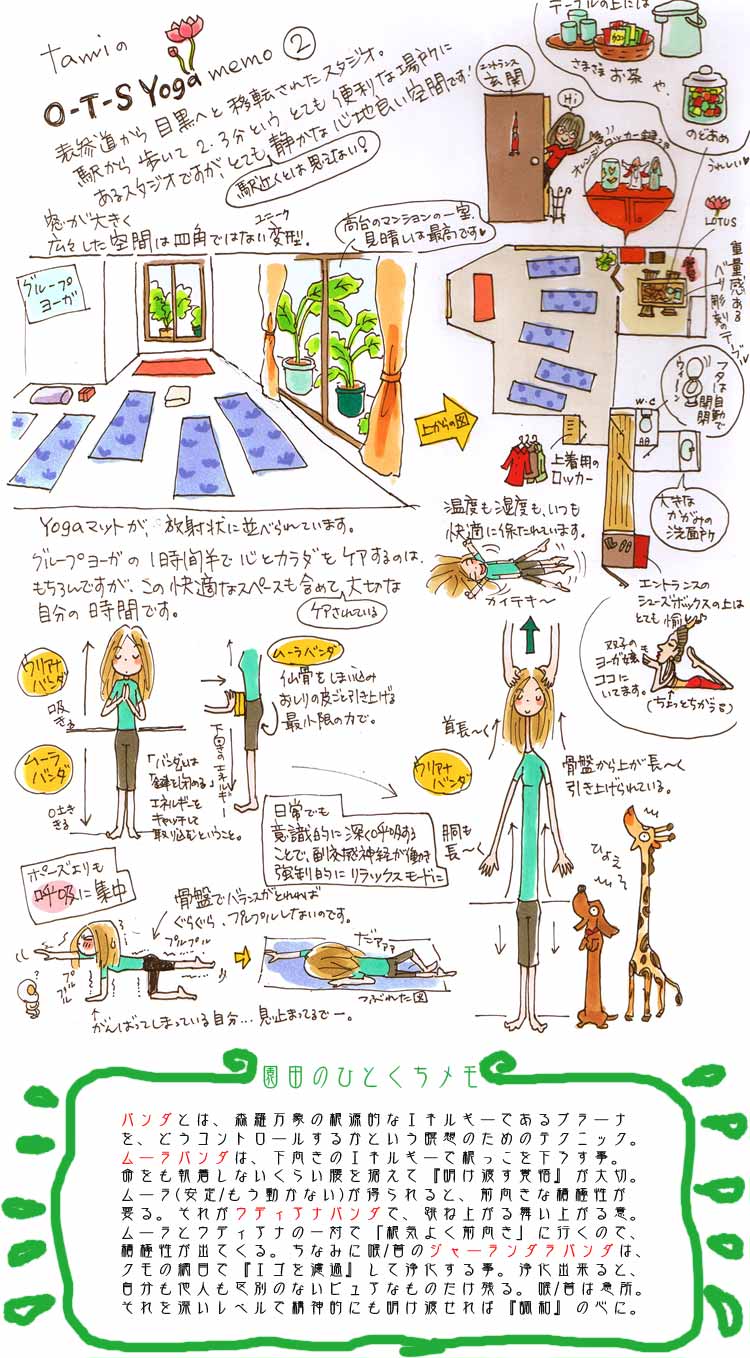 tamiの
O-T-S Yoga memo ②
表参道から目黒へと移転されたスタジオ。
駅から歩いて2、3分というとても便利な場所に
あるスタジオですが、とても静かな心地良い空間です!
駅近くとは思えない!
窓が大きく
広々した空間は四角ではない変形。
ユニーク
高台のマンションの一室、
見晴しは最高です♥
グループ
ヨーガ
テーブルの上には
さまざまお茶
や、
のどあめ
うれしい♥
エントランス
玄関
Hi
オレンジロッカー
LOTUS
重量感ある
バリ彫刻の
フタは自動で
開閉
ウィーン
w.c
上からの図
上着用の
ロッカー
大きな
かがみの
洗面所
Yogaマットが、放射状に並べられています。
グループヨーガの1時間半で心とカラダをケアするのは、
もちろんですが、この快適なスペースも含めて、大切な
自分の時間です。
ケアされている
温度も湿度も、いつも
快適に保たれています。
カイテキ〜
エントランスの
シューズボックスの上は
とても愉し♪
双子の
ヨーガ嬢
ココに
いてます。
(ちょっとちがうる)
ウリアナ
バンダ
吸
きる
ムーラ
バンダ
吐き
きる
「バンダ」は
「鍵を閉める」
エネルギーを
キャッチして
取り込むということ。
下向きのエネルギー
ムーラバンダ
仙骨をしまい込み
おしりの皮ごと引き上げる
最小限の力で。
日常でも
意識的に深く呼吸する
ことで、副交感神経が働き
強制的にリラックスモードに
ウリアナ
バンダ
首長〜く
胴も
長〜く
骨盤から上が長〜く
引き上げられている。
ひょえ〜
ポーズよりも
呼吸に集中
骨盤でバランスがとれれば
ぐらぐら、プルプルしないのです。
プルプル
プル
プル
だァァァ
つぶれた図
がんばってしまっている自分…息止まってるで〜。
園田のひとくちメモ
バンダとは、森羅万象の根源的なエネルギーであるプラーナ
を、どうコントロールするかという瞑想のためのテクニック。
ムーラバンダは、下向きのエネルギーで根っこを下ろす事。
命をも執着しないくらい腰を据えて『明け渡す覚悟』が大切。
ムーラ(安定/もう動かない)が得られると、前向きな積極性が
要る。それがウディアナバンダで、跳ね上がる舞い上がる意。
ムーラとウディアナの一対で「根気よく前向き」に行くので、
積極性が出てくる。ちなみに喉/首のジャーランダラバンダは、
クモの網目で『エゴを濾過』して浄化する事。浄化出来ると、
自分も他人も区別のないピュアなものだけ残る。喉/首は急所。
それを深いレベルで精神的にも明け渡せれば『調和』の心に。